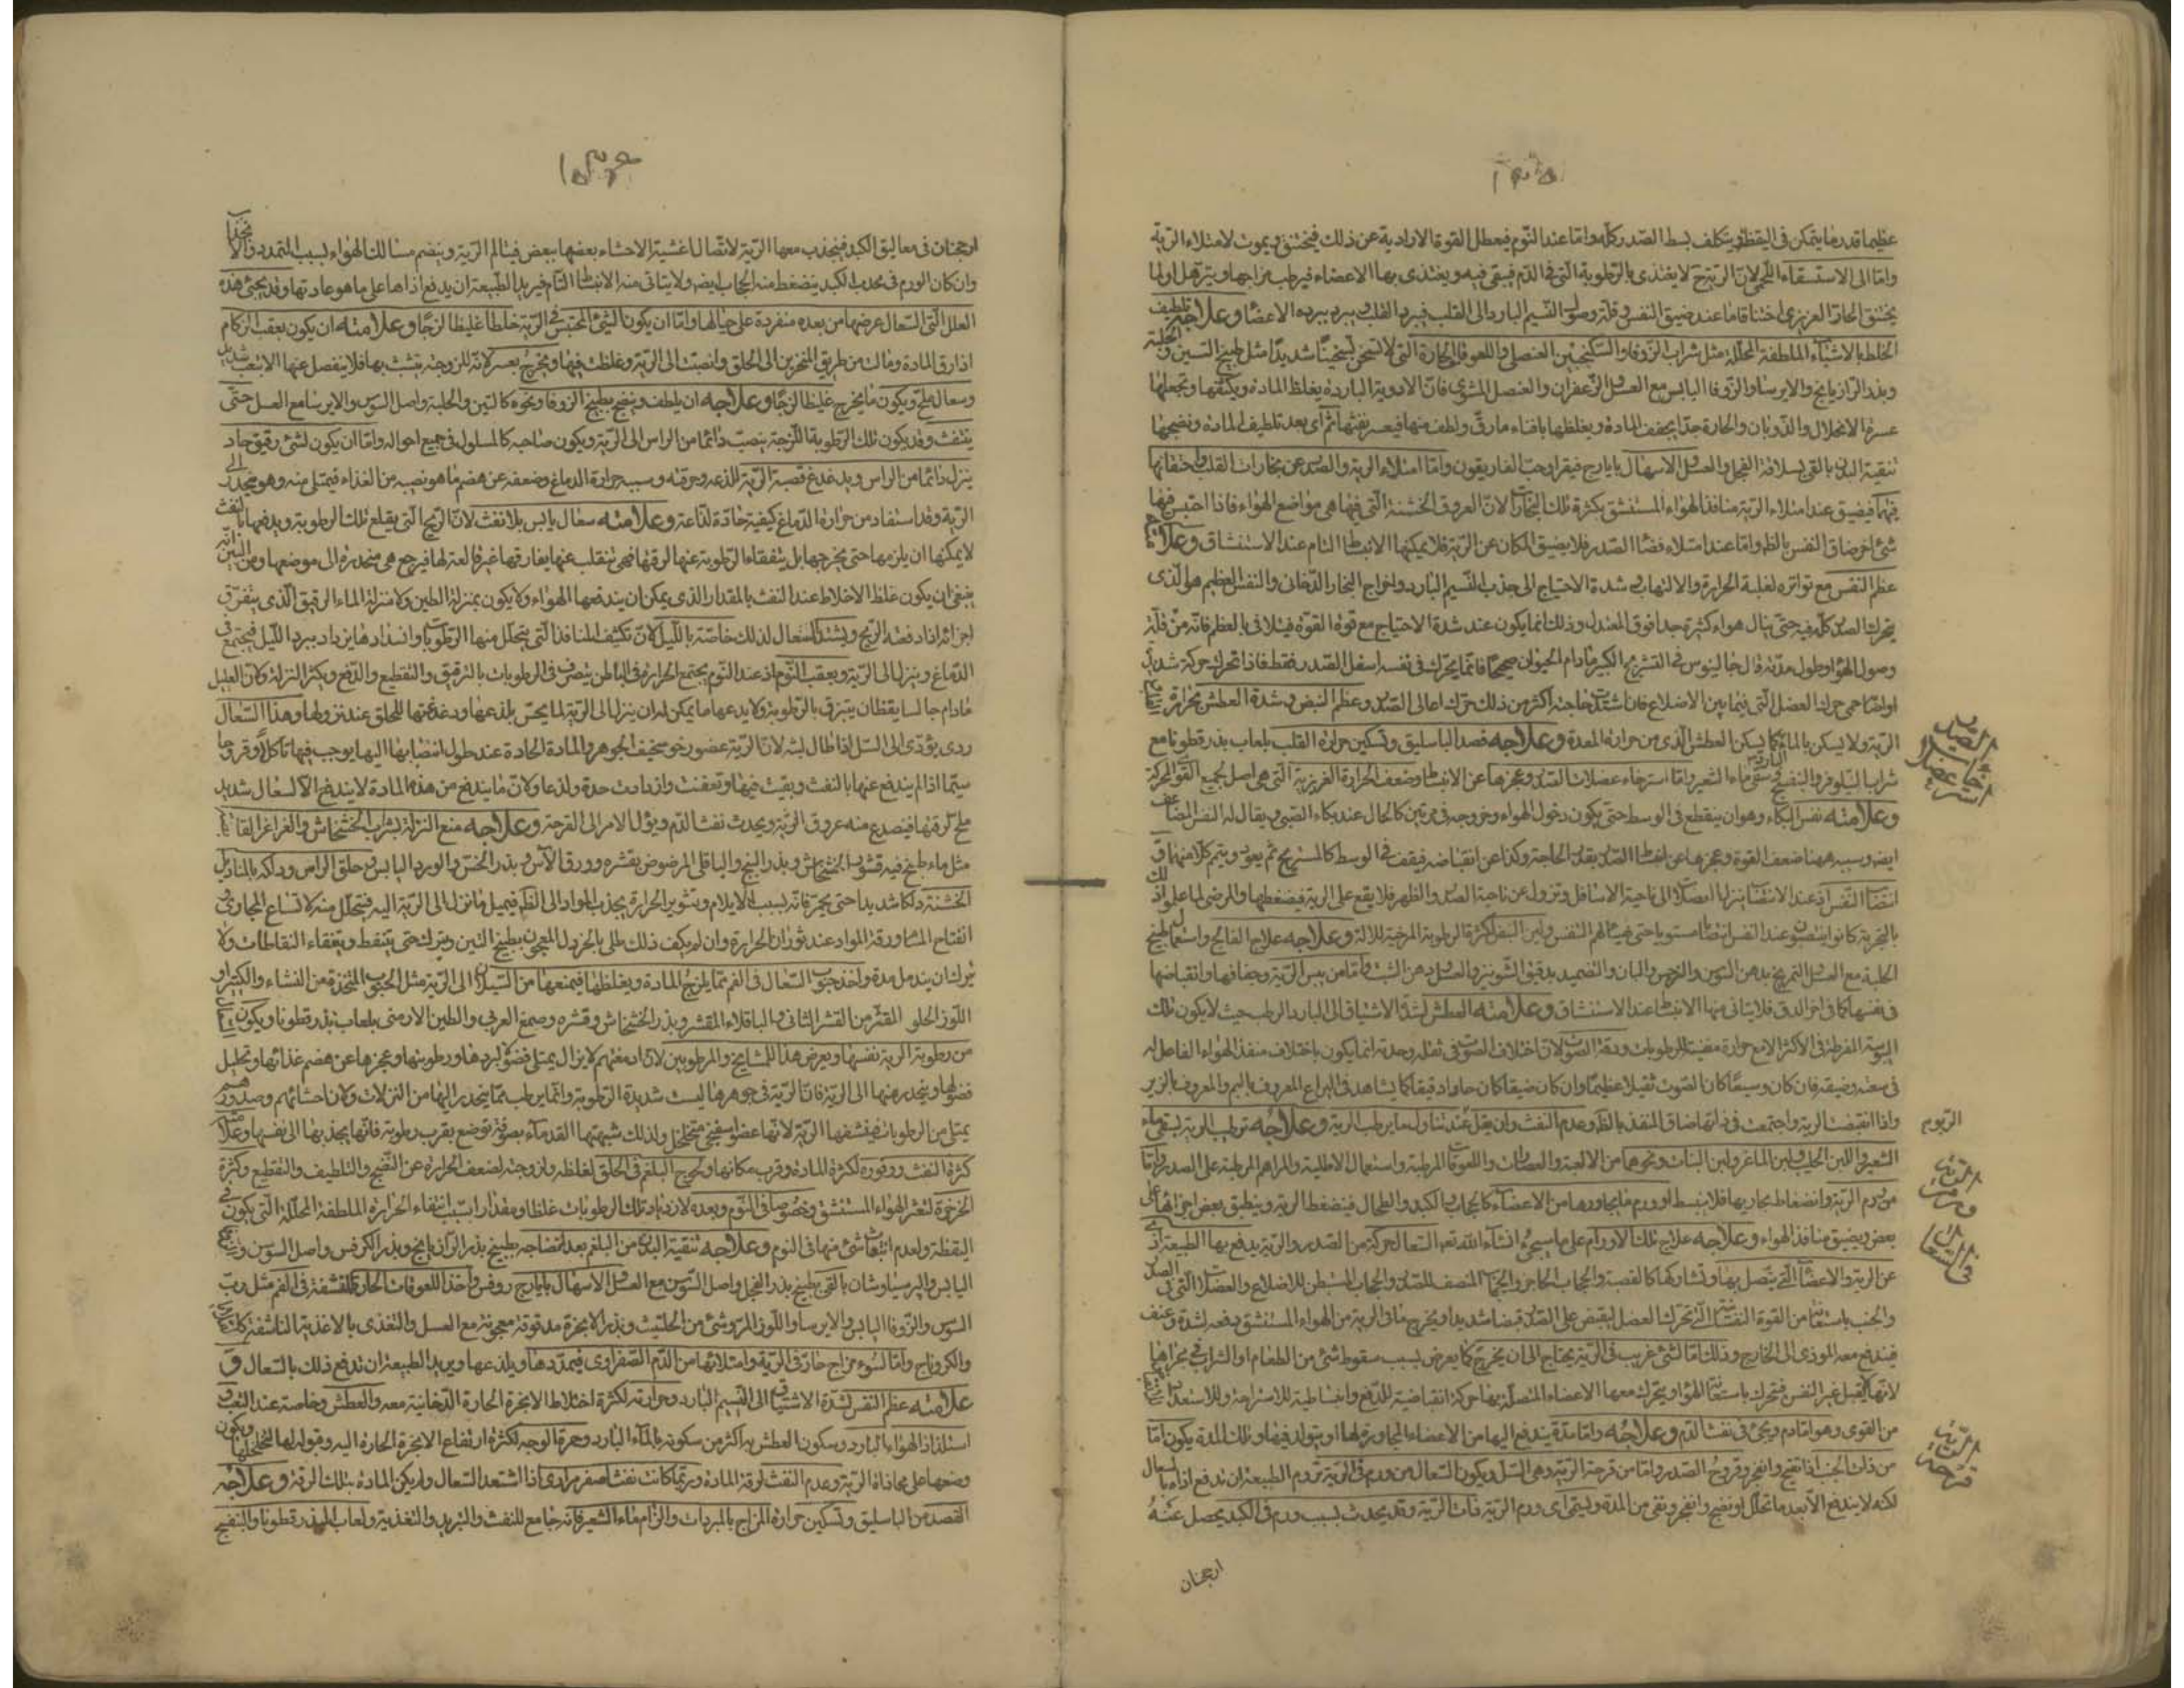 عظيما قدر ما يتمكن في اليقظة ويتكلف بسط الصدر كله واما عند النوم فيعطل القوة الارادية عن ذلك فيختنق ويموت لامتلاء الرية
واما الى الاستسقاء اللحمي لان الرية لا يغتذى بالرطوبة التي في الدم فيبقى فيه ويغتذى بها الاعضاء فيرطب مزاجها ويترهل
يختنق الحار الغريزي اختناقا ما عند ضيق النفس وقلة وصول النسيم البارد الى القلب فيبرد القلب ويبرد ببرده الاعضا وعلاجه تلطيف
الخلط بالاشياء الملطفة المحللة مثل شراب الزوفا والسكنجبين العنصلي واللعوقات الحارة التي لا تسخن تسخينا شديدا مثل طبيخ التين والحلبة
وبذر الرازيانج والايرسا والزوفا اليابس مع العسل والزعفران والعنصل المشوي فان الادوية الباردة يغلظ المادة ويكثفها ويجعلها
عسرة الانحلال والذوبان والحارة جدا يجفف المادة ويغلظها بافناء ما رق ولطف منها فيعسر نفثها ثم اى بعد تلطيف المادة ونضجها
تنقية البدن بالقي بسلاقة الفجل والعسل والاسهال بايارج فيقرا وحب الغاريقون واما امتلاء الرية والصدر عن بخارات القلب واحتقانها
فيهما فيضيق عند امتلاء الرية منافذ الهواء المستنشق بكثرة تلك البخارات لان العروق الخشنة التي فيها هي مواضع الهواء فاذا احتبس فيها
شئ اخر ضاق النفس بالظ واما عند امتلاء فضا الصدر فلا يضيق المكان عن الرية فلا يمكنها الانبساط التام عند الاستنشاق وعلامته
عظم النفس مع تواتره لغلبة الحرارة والالتهاب وشدة الاحتياج الى جذب النسيم البارد واخراج البخار الدخاني والنفس العظيم هو الذى
يتحرك الصدر كله فيه حتى ينال هواء كثيرة جدا فوق المعتدل وذلك انما يكون عند شدة الاحتياج مع قوة القوة فيتلافى بالعظم ما فاته من قلة
وصول الهواء وطول مدته قال جالينوس في التشريح الكبير ما دام الحيوان صحيحا فانما يتحرك في نفسه اسفل الصدر فقط فاذا تحرك حركة شديدة
او اصابته حمى حرك العضل التي فيما بين الاضلاع فان اشتد حاجته اكثر من ذلك حرك اعالى الصدر وعظم النبض وشدة العطش
الرية ولا يسكن بالماء كما يسكن العطش الذى من حرارة المعدة وعلاجه فصد الباسليق وتسكين حرارة القلب بلعاب بذر قطونا مع
شراب النيلوفر والبنفسج وسقي ماء الشعير واما استرخاء عضلات الصدر وعجزها عن الانبساط وضعف الحرارة الغريزية التي هي اصل لجميع القوى المحركة
وعلامته نفس البكاء وهو ان ينقطع في الوسط حتى يكون دخول الهواء وخروجه في مرتين كالحال عند بكاء الصبي ويقال له النفس المتضاعف
ايضا وسببه ههنا ضعف القوة وعجزها عن انبساط الصدر بقدر الحاجة وكذا عن انقباضه فيقف في الوسط كالمستريح ثم يعود ويتم كلا منهما
الحلبة مع العسل والتمريخ بدهن السوسن والنرجس والبان والتضميد بدقيق الشونيز والعسل ودهن الشبت واما من يبس الرية وجفافها وانقباضها
في نفسها كما في اخر الدق فلا يتاتى منها الانبساط عند الاستنشاق وعلامته العطش لشدة الاشتياق الى البارد الرطب حيث لا يكون تلك
اليبوسة المفرطة في الاكثر الا مع حرارة مفنية للرطوبات ودقة الصوت لان اختلاف الصوت في ثقله وحدته انما يكون باختلاف منفذ الهواء الفاعل له
في سعته وضيقه فان كان وسيعا كان الصوت ثقيلا عظيما وان كان ضيقا كان حادا دقيقا كما يشاهد في اليراع المعروف بالبم والمعروف بالزير
واذا انقبضت الرية واجتمعت في ذاتها ضاق المنفذ بالظ وعدم النفث وان يقل عند تناول ما يرطب الرية وعلاجه ترطيب الرية بسقي ماء
الشعير واللبن الحليب ولبن الماعز ولبن البنات ونحوها من الالعبة والعصارات واللعوقات المرطبة واستعمال الاطلية والمراهم المرطبة على الصدر واما
من ورم الرية وانضغاط مجاريها فلا ينبسط او ورم ما يجاورها من الاعضاء كالحجاب والكبد والطحال فينضغط الرية وينطبق بعض اجزائها على
بعض ويضيق منافذ الهواء وعلاجه علاج تلك الاورام على ما سيجئ ان شاء الله تعالى السعال حركة من الصدر والرية يدفع بها الطبيعة اذى
عن الرية والاعضاء التي يتصل بها وتشاركها كالقصبة والحجاب الحاجز والحجاب المنصف للصدر والحجاب المستبطن للاضلاع والعضلات التي في الصدر
والجنب باستعانة من القوة النفسانية التي تحرك العضل ليقبض على الصدر قبضا شديدا ويخرج ما في الرية من الهواء المستنشق دفعة بشدة وعنف
فيندفع معه الموذى الى الخارج وذلك اما لشئ غريب في الرية يحتاج الى ان يخرج كما يعرض بسبب سقوط شئ من الطعام او الشراب في مجراها
لانها لا يقبل غير النفس فتتحرك باستعانة الهواء ويتحرك معها الاعضاء المتصلة بها حركة انقباضية للدفع وانبساطية للاستراحة وللاستعداد
من القوى وهو اما دم ويجئ في نفث الدم وعلاجه واما مدة يندفع اليها من الاعضاء المجاورة لها او يتولد فيها وتلك المدة يكون اما
من ذات الجنب اذا نضج وانفجر وقروح الصدر واما من قرحة الرية وهي السل ويكون السعال من ورم في الرية تروم الطبيعة ان تدفع اذاه بالسعال
لكنه لا يندفع الا بعد ما تحلل او نضج وانفجر ونقى من المدة ويسمى اى ورم الرية ذات الرية وقد يحدث بسبب ورم في الكبد يحصل عنه
ارجحنان
استرخاء عضل الصدر
اليبوسة
ورم الرية
في السعال
قرحة الرية
ارجحنان في معاليق الكبد فينجذب معها الرية لاتصال اغشية الاحشاء بعضها ببعض فيتالم الرية وينضم مسالك الهواء بسبب التمدد والانجذاب
وان كان الورم في محدب الكبد ينضغط منه الحجاب ايضا ولا يتاتى منه الانبساط التام فيريد الطبيعة ان يدفع اذاها على ما هو عادتها وقد يجئ هذه
العلل التي السعال عرضها من بعده منفردة على حيالها واما ان يكون الشئ المحتبس في الرية خلطا غليظا لزجا وعلامته ان يكون بعقب الزكام
اذا رق المادة ومالت من طريق المنخرين الى الحلق وانصبت الى الرية وغلظت فيها ويخرج بعسر لانه للزوجته يتشبث بها فلا ينفصل عنها الا بتعب شديد
وسعال ملح ويكون ما يخرج غليظا لزجا وعلاجه ان يلطف وينضج بطبيخ الزوفا ونحوه كالتين والحلبة واصل السوس والايرسا مع العسل حتى
ينفث وقد يكون تلك الرطوبة اللزجة ينصب دائما من الراس الى الرية ويكون صاحبه كالمسلول في جميع احواله واما ان يكون لشئ رقيق حاد
ينزل دائما من الراس ويدغدغ قصبة الرية للذعه وحرقته وسببه حرارة الدماغ وضعفه عن هضم ما هو نصيبه من الغذاء فيمتلى منه وهو ينحدر الى
الرية وقد استفاد من حرارة الدماغ كيفية حادة لذاعة وعلامته سعال يابس بلا نفث لان الريح التي يقلع تلك الرطوبة ويدفعها بالنفث
لا يمكنها ان يلزمها حتى يخرجها بل يتفقاء الرطوبة عنها لرقتها فهي تنقلب عنها يفارقها غير قالعة لها فيرجع هي منحدرة الى موضعها ومن البين انه
ينبغي ان يكون غلظ الاخلاط عند النفث بالمقدار الذى يمكن ان يندفع بها الهواء ولا يكون بمنزلة الطين ولا منزلة الماء الرقيق الذى يتفرق
اجزائه اذا دفعته الريح ويشتد السعال لذلك خاصة بالليل لان تكثف المنافذ التي يتحلل منها الرطوبات وانسدادها يزداد ببرد الليل فيجتمع في
الدماغ وينزل الى الرية وبعقب النوم اذ عند النوم يجتمع الحرارة في الباطن يتصرف في الرطوبات بالترقيق والتقطيع والدفع ويكثر النزلة وكان العليل
ما دام جالسا يقظان يتبزق بالرطوبة ولا يدعها ما يمكن له ان ينزل الى الرية لما يحس بلذعها ودغدغتها للحلق عند نزولها وهذا السعال
ردى يؤدى الى السل اذا طال لبثه لان الرية عضو رخو سخيف الجوهر والمادة الحادة عند طول انصبابها اليها يوجب فيها تاكلا وقروحا
سيما اذا لم يندفع عنها بالنفث وبقيت فيها وتعفنت وازدادت حدة ولذعا ولان ما يندفع من هذه المادة لا يندفع الا لسعال شديد
ملح لرقتها فينصدع منه عروق الرية ويحدث نفث الدم ويؤل الامر الى القرحة وعلاجه منع النزلة بشراب الخشخاش والغراغر القابضة
مثل ماء طبخ فيه قشور الخشخاش وبذر البنج والباقلى المرضوض بقشره وورق الآس وبذر الخس والورد اليابس وحلق الراس ودلكه بالمناديل
الخشنة دلكا شديدا حتى يحمر فانه بسبب الايلام وتثوير الحرارة يجذب المواد الى الظهر فيميل ما نزل الى الرية اليه فيتحلل منه لاتساع المجارى
انفتاح المسام ورقة المواد عند ثوران الحرارة وان لم يكف ذلك طلى بالخردل المعجون بطبيخ التين ويترك حتى يتنفط ويتفقاء النفاطات ولا
يترك ان يندمل مدة واخذ حبوب السعال في الفم مما يلزج المادة ويغلظها فيمنعها من السيلان الى الرية مثل الحبوب المتخذة من النشاء والكثيرا و
اللوز الحلو المقشر من القشر الثاني والباقلاء المقشر وبذر الخشخاش وقشره وصمغ العربي والطين الارمني بلعاب بذر قطونا ويكون
من رطوبة الرية نفسها ويعرض هذا للمشايخ والمرطوبين لان ادمغتهم لا يزال يمتلى فضولا لبردها ورطوبتها وعجزها عن هضم غذائها وتحليل
فضولها وينحدر منها الى الرية فان الرية في جوهرها ليست شديدة الرطوبة وانما يرطب بما ينحدر اليها من النزلات ولان احشائهم وصدورهم
يمتلى من الرطوبات فينشفها الرية لانها عضو اسفنجي متخلخل ولذلك شبهتها القدماء بصوفة توضع بقرب رطوبة فانها يجذبها الى نفسها وعلامته
كثرة النفث ووفوره لكثرة المادة وقرب مكانها ويحرج البلغم في الحلق لغلظه ولزوجته لضعف الحرارة عن النضج والتلطيف والتقطيع وكثرة
الخرخرة لتعثر الهواء المستنشق وخصوصا في النوم وبعده لازدياد تلك الرطوبات غلظا ومقدارا بسبب انتفاء الحرارة الملطفة المحللة التي يكون في
اليقظة ولعدم انبعاث شئ منها في النوم وعلاجه تنقية البدن من البلغم بعد انضاجه بطبيخ بذر الرازيانج وبذر الكرفس واصل السوسن
اليابس والبرسياوشان بالقي بطبيخ بذر الفجل واصل السوسن مع العسل والاسهال بايارج روفس واخذ اللعوقات الحارة المنشفة في الفم مثل رب
السوس والزوفا اليابس والايرسا واللوز المر وشئ من الحلتيت وبذر الانجرة مدقوقة معجونة مع العسل والتغذى بالاغذية الناشفة
والكردناج واما لسوء مزاج حار في الرية وامتلائها من الدم الصفراوى فيمددها ويلذعها ويريد الطبيعة ان تدفع ذلك بالسعال و
علامته عظم النفس لشدة الاشتياق الى النسيم البارد وحرارته لكثرة اختلاط الابخرة الحارة الدخانية معه والعطش وخاصة عند التعب و
استلذاذ الهواء البارد وسكون العطش به اكثر من سكونه بالماء البارد وحمرة الوجه لكثرة ارتفاع الابخرة الحارة اليه وقبوله لها لتخلخلها ويكون
وضعها على محاذاة الرية وعدم النفث لرقة المادة وربما كانت نفثا صفر مرارى اذا اشتد السعال ولم يكن المادة بتلك الرقة وعلاجه
الفصد من الباسليق وتسكين حرارة المزاج بالمبردات والزام ماء الشعير فانه جامع للنفث والتبريد والتغذية ولعاب البذر قطونا والبنفسج